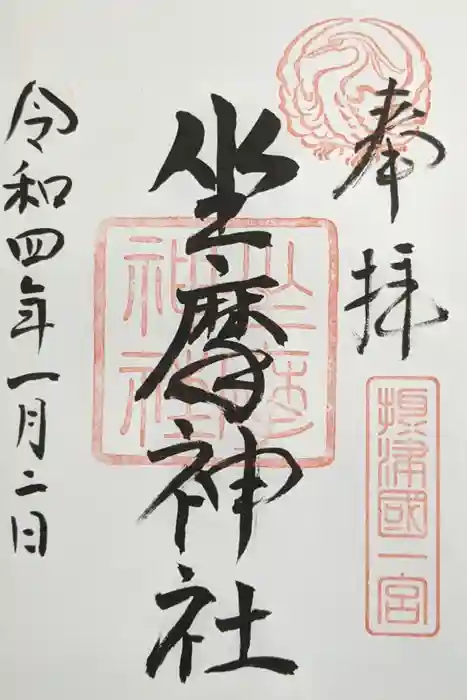 奉拝
攝津國一宮
坐摩神社
坐摩神社
令和四年一月二日